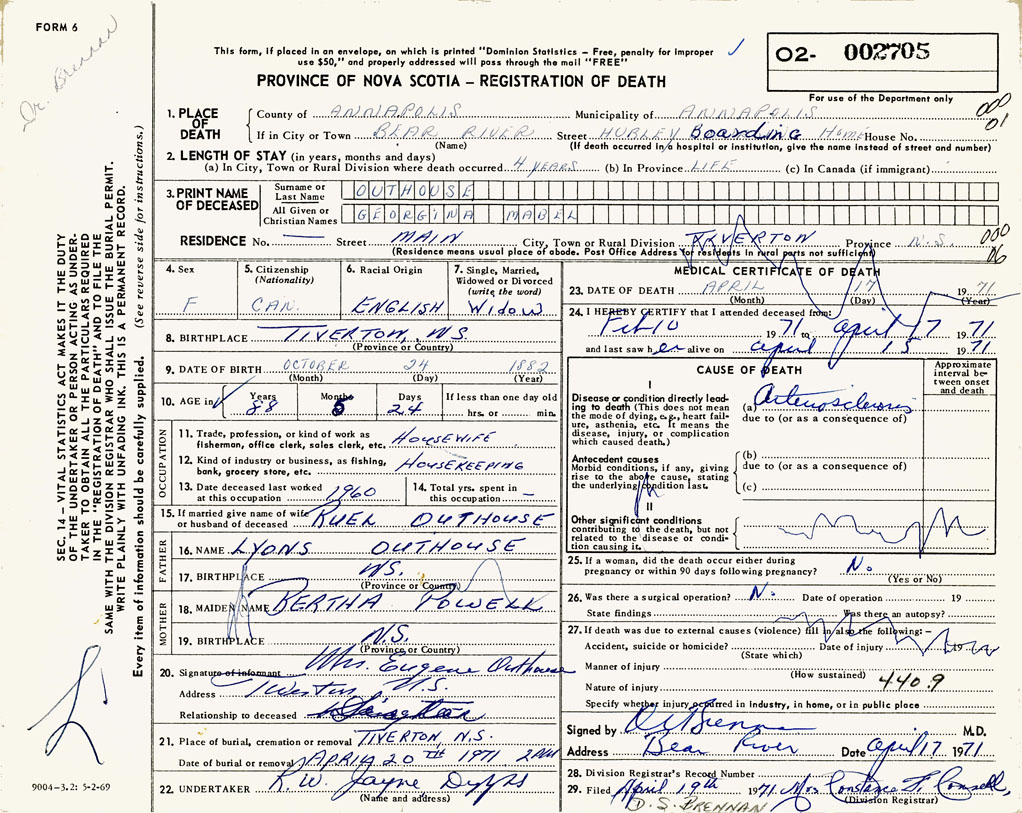 FORM 6
Dr. Brennan
This form, if placed in an envelope, on which is printed "Dominion Statistics – Free, penalty for improper
use $50," and properly addressed will pass through the mail "FREE"
02- 002705
PROVINCE OF NOVA SCOTIA – REGISTRATION OF DEATH
For use of the Department only
1. PLACE OF DEATH
County of ANNAPOLIS Municipality of ANNAPOLIS
000
01
If in City or Town BEAR RIVER Street HURLEY Boarding Home House No.
(Name) (If death occurred in a hospital or institution, give the name instead of street and number)
2. LENGTH OF STAY (in years, months and days)
(a) In City, Town or Rural Division where death occurred 4 YEARS (b) In Province LIFE (c) In Canada (if immigrant)
3. PRINT NAME OF DECEASED
Surname or Last Name OUTHOUSE
All Given or Christian Names GEORGINA MABEL
RESIDENCE No. — Street MAIN City, Town or Rural Division TIVERTON Province N.S.
000
06
(Residence means usual place of abode. Post Office Address for residents in rural parts not sufficient)
4. Sex F
5. Citizenship (Nationality) CAN.
6. Racial Origin ENGLISH
7. Single, Married, Widowed or Divorced (write the word) WIDOW
8. BIRTHPLACE TIVERTON, N.S.
(Province or Country)
9. DATE OF BIRTH OCTOBER 24 1882
(Month) (Day) (Year)
10. AGE in Years 88 Months 5 Days 24 If less than one day old
hrs. or min.
OCCUPATION
11. Trade, profession, or kind of work as
fisherman, office clerk, sales clerk, etc. HOUSEWIFE
12. Kind of industry or business, as fishing,
bank, grocery store, etc. HOUSEKEEPING
13. Date deceased last worked
at this occupation 1960
14. Total yrs. spent in
this occupation –
15. If married give name of wife
or husband of deceased RUEL OUTHOUSE
FATHER
16. NAME LYONS OUTHOUSE
17. BIRTHPLACE N.S.
(Province or Country)
MOTHER
18. MAIDEN NAME BERTHA POWELL
19. BIRTHPLACE N.S.
(Province or Country)
20. Signature of informant Mrs. Eugene Outhouse
Address Tiverton, N.S.
Relationship to deceased
21. Place of burial, cremation or removal TIVERTON, N.S.
Date of burial or removal APRIL 20TH 1971
22. UNDERTAKER R.W. Jayne Digby
(Name and address)
MEDICAL CERTIFICATE OF DEATH
23. DATE OF DEATH APRIL 17 1971
(Month) (Day) (Year)
24. I HEREBY CERTIFY that I attended deceased from:
Feb 10 1971 to April 17 1971
and last saw her alive on April 15 1971
CAUSE OF DEATH
Approximate interval between onset and death
I
Disease or condition directly leading
to death (This does not
mean the mode of dying, e.g., heart failure,
asthenia, etc. It means the
disease, injury, or complication
which caused death.)
(a) Arteriosclerosis
due to (or as a consequence of)
Antecedent causes
Morbid conditions, if any, giving
rise to the above cause, stating
the underlying condition last.
(b)
due to (or as a consequence of)
(c)
II
Other significant conditions
contributing to the death, but not
related to the disease or condition
causing it.
25. If a woman, did the death occur either during
pregnancy or within 90 days following pregnancy? No
(Yes or No)
26. Was there a surgical operation? No Date of operation 19
State findings Was there an autopsy?
27. If death was due to external causes (violence) fill in also the following: –
Accident, suicide or homicide? Date of injury 19
(State which)
Manner of injury
(How sustained)
Nature of injury 440.9
Specify whether injury occurred in industry, in home, or in public place
Signed by Brennan M.D.
Address Bear River Date April 17 1971
28. Division Registrar's Record Number
29. Filed April 19th 1971
(Division Registrar)
D. S. BRENNAN
SEC. 14 – VITAL STATISTICS ACT MAKES IT THE DUTY
OF THE UNDERTAKER OR PERSON ACTING AS UNDERTAKER
TO OBTAIN ALL THE PARTICULARS REQUIRED
IN THE "REGISTRATION OF DEATH" AND TO FILE THE
SAME WITH THE DIVISION REGISTRAR WHO SHALL ISSUE THE BURIAL PERMIT.
WRITE PLAINLY WITH UNFADING INK. THIS IS A PERMANENT RECORD.
Every item of information should be carefully supplied. (See reverse side for instructions.)
9004–3.2: 5-2-69